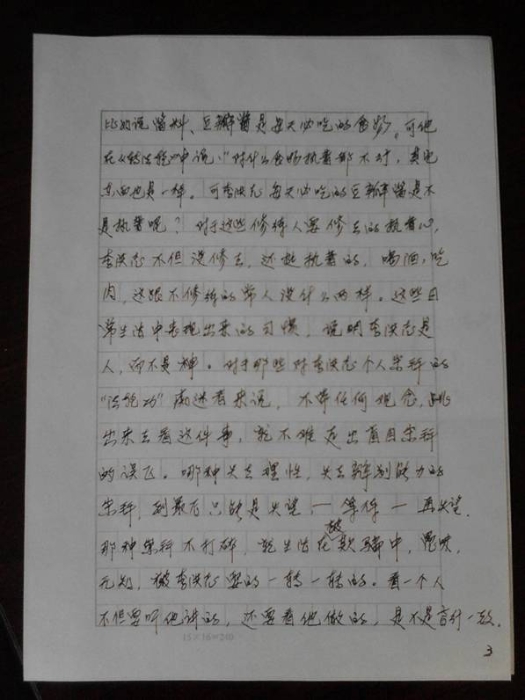 比如说酱料、豆瓣酱是每天必吃的食物。可他
在《转法轮》中说:“对什么食物执著都不对,其它
东西也是一样。可李洪志每天必吃的豆瓣酱是不
是执著呢?对于这些修炼人要修去的执著心,
李洪志不但没修去,还挺执著的,喝酒,吃
肉,这跟不修炼的常人没什么两样。这些日
常生活中表现出来的习惯,说明李洪志是
人,而不是神。对于那些对李洪志个人崇拜的
“法轮功”痴迷者来说,不带任何观念,跳
出来去看这件事,就不难走出盲目崇拜
的误区。那种失去理性,失去辨别能力的
崇拜,到最后只能是失望——等待——再失望。
那种崇拜不打碎,就生活在被欺骗中,愚昧,
无知,被李洪志耍的一转一转的。看一个人
不但要听他讲的,还要看他做的,是不是言行一致。
15×16=240
3